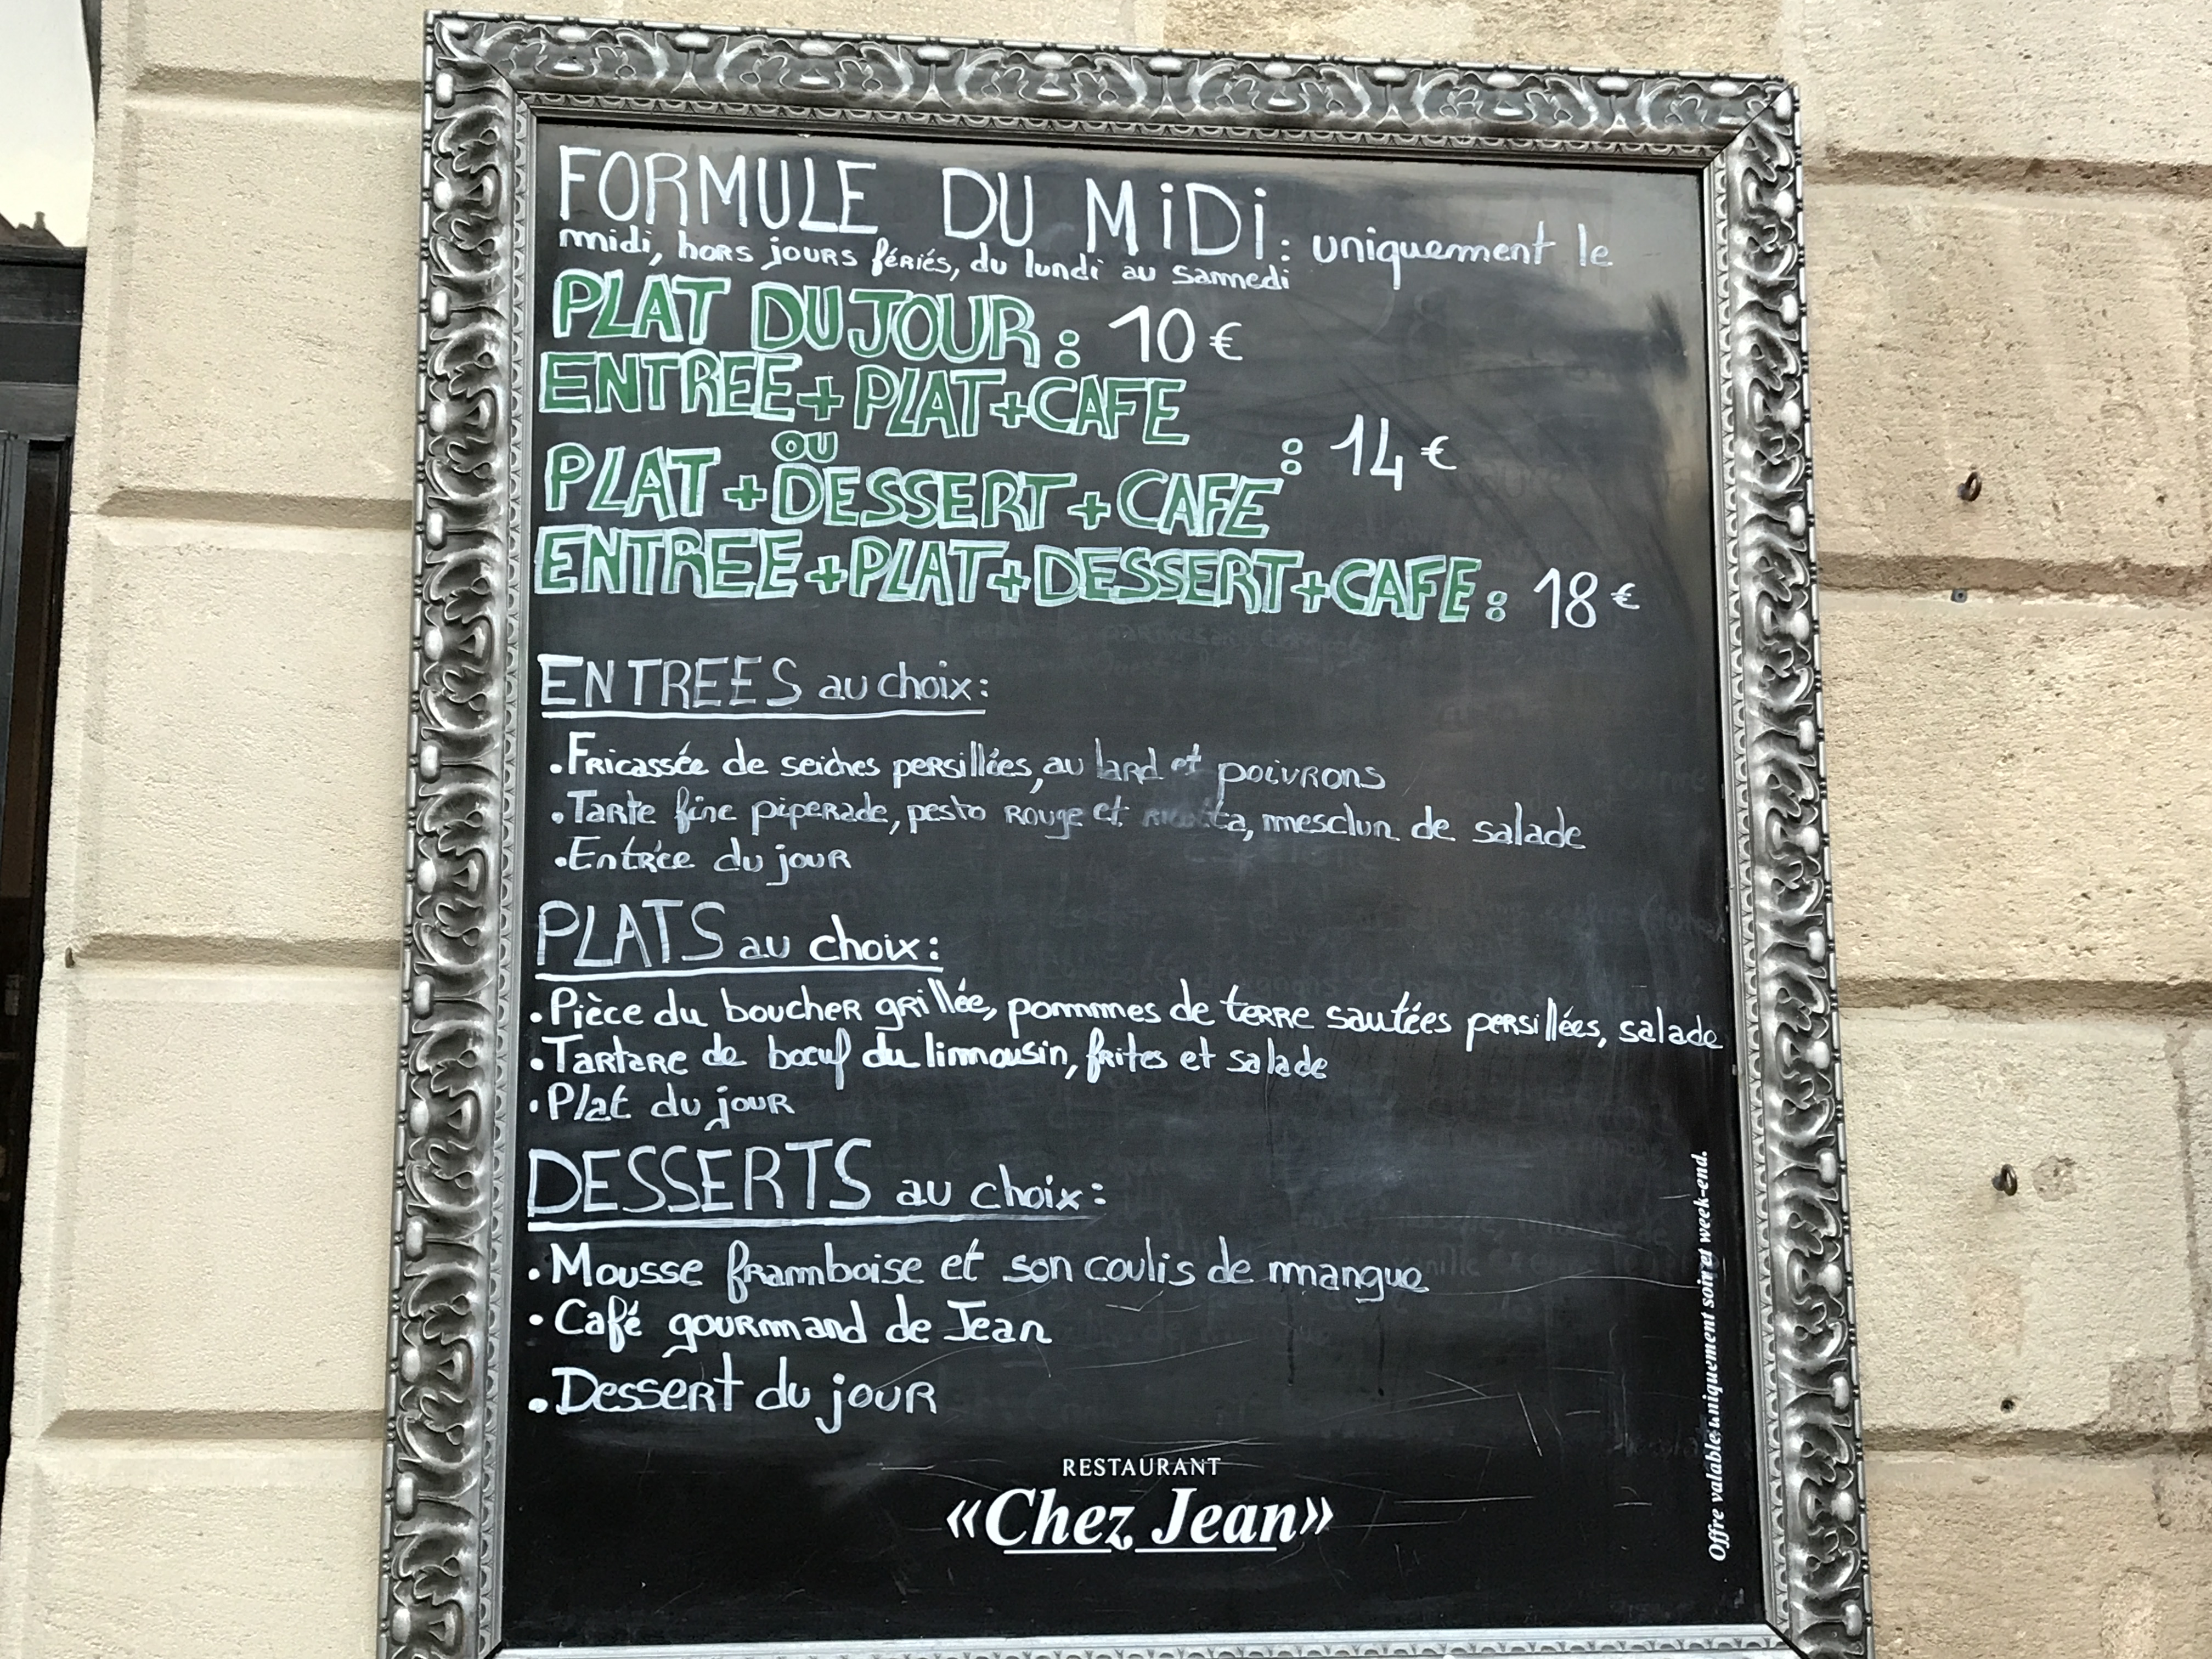 FORMULE DU MiDi : uniquement le
midi, hors jours fériés, du lundi au samedi
PLAT DU JOUR : 10 €
ENTREE + PLAT + CAFE
OU
: 14 €
PLAT + DESSERT + CAFE
ENTREE + PLAT + DESSERT + CAFE : 18 €
ENTREES au choix :
• Fricassée de seiches persillées, au lard et poivrons
• Tarte fine piperade, pesto rouge et ricotta, mesclun de salade
• Entrée du jour
PLATS au choix :
• Pièce du boucher grillée, pommes de terre sautées persillées, salade
• Tartare de bœuf du limousin, frites et salade
• Plat du jour
DESSERTS au choix :
• Mousse framboise et son coulis de mangue
• Café gourmand de Jean
• Dessert du jour
RESTAURANT
«Chez Jean»
Offre valable uniquement soir et week-end.